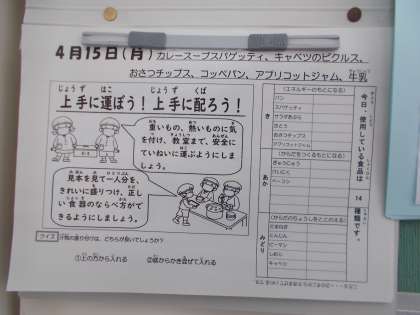 4月15日(月) カレースープスパゲッティ、キャベツのピクルス、
おさつチップス、コッペパン、アプリコットジャム、牛乳
上手に運ぼう！上手に配ろう！
重いもの、熱いものに気
を付け、教室まで、安全に
ていねいに運ぶようにしま
しょう。
見本を見て一人分を、
きれいに盛りつけ、正し
い食器のならべ方がで
きるようにしましょう。
クイズ
①上の方から入れる
②底からかき混ぜて入れる
今日、使用している食品は 14 種類です。
き
(エネルギーのもとになる)
パン
スパゲティ
さとう
おさつチップス
アプリコットジャム
あか
(からだをつくるもとになる)
ぎゅうにゅう
ベーコン
みどり
(からだのちょうしをととのえる)
たまねぎ
にんじん
ピーマン
しめじ
キャベツ